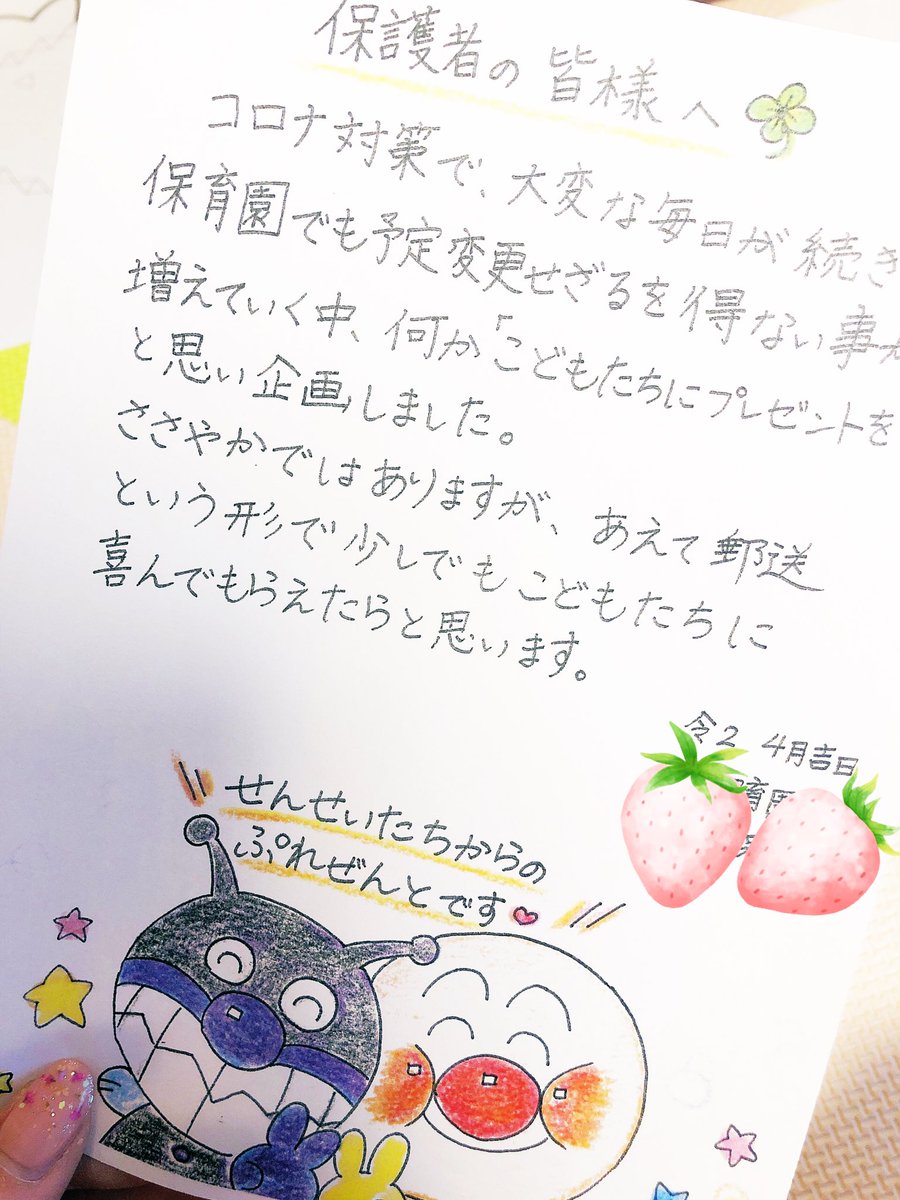 保護者の皆様へ
コロナ対策で、大変な毎日が続き
保育園でも予定変更せざるを得ない事が
増えていく中、何か「こどもたちにプレゼントを
と思い企画しました。
ささやかではありますが、あえて郵送
という形で少しでもこどもたちに
喜んでもらえたらと思います。
令2 4月吉日
せんせいたちからの
ぷれぜんとです